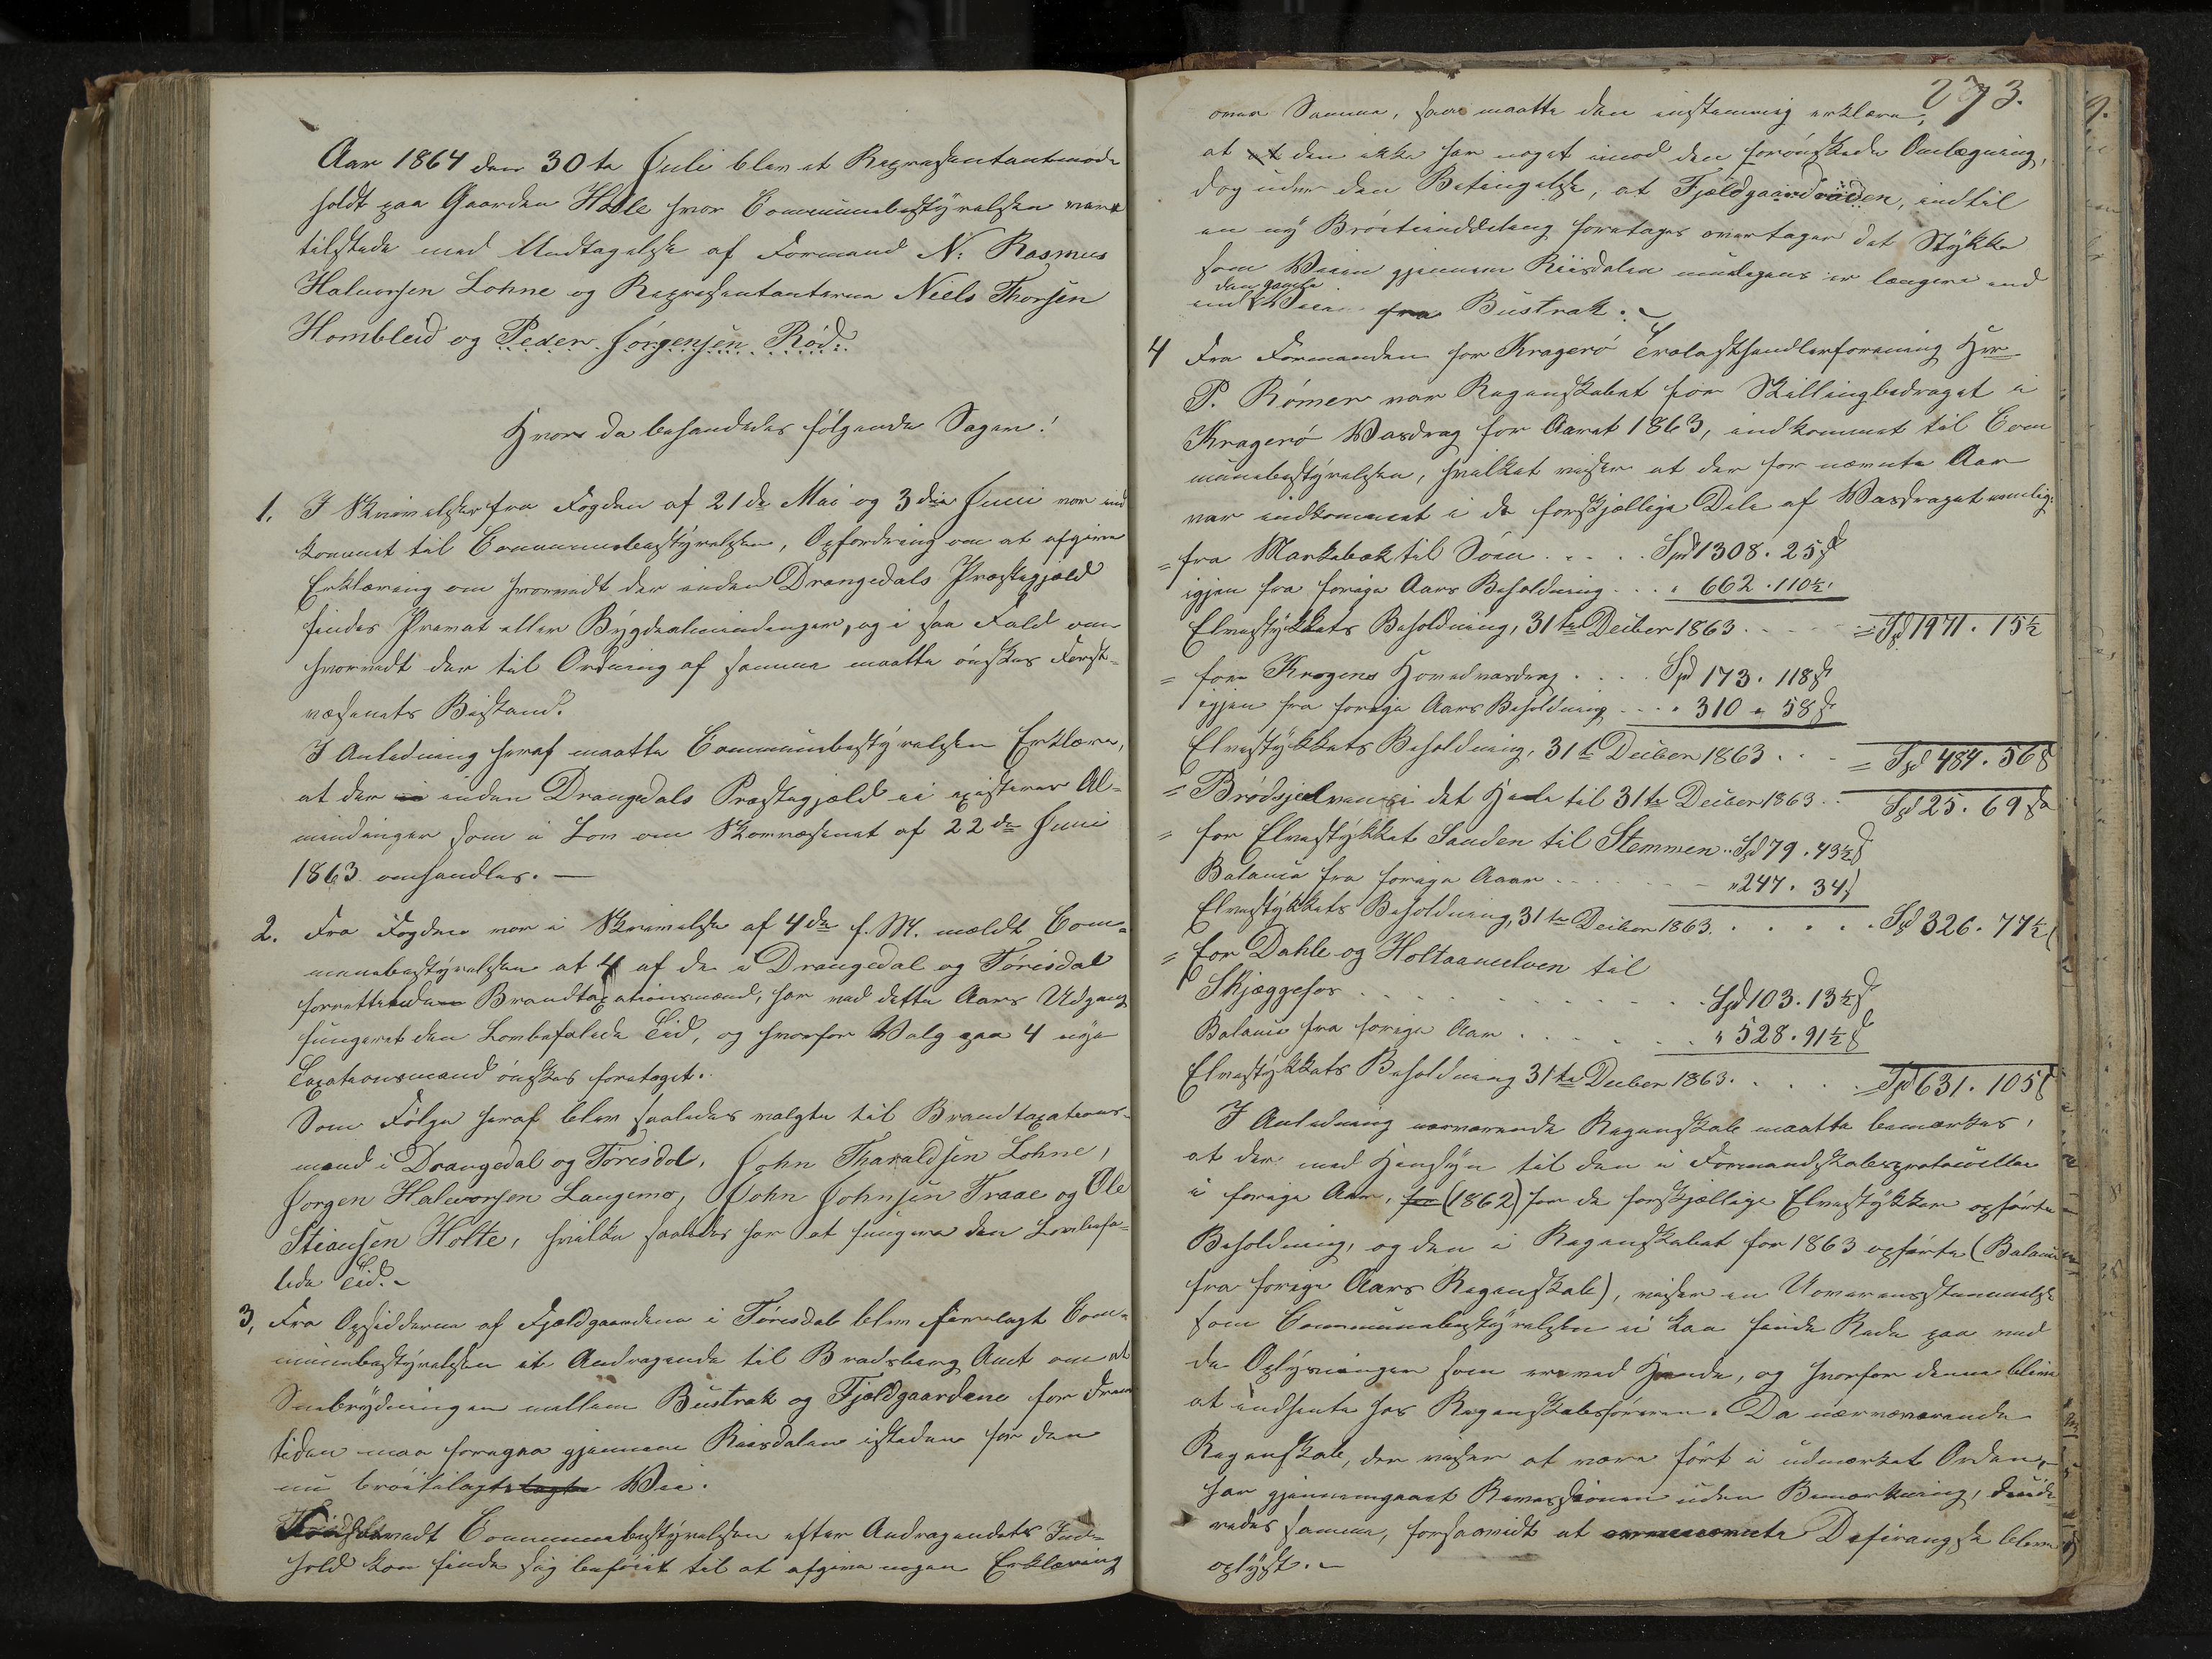 Aar 1864 den 30te Juli blev et Repræsentantmøde
holdt paa Gaarden Hasle hvor Communebestÿrelsen var
tilstede med Undtagelse af Formand N: Rasmus
Halvorsen Lohne og Repræsentanterne Niels Thorsen
Hombleid og Peder Jörgensen Röd.
Hvor da behandledes fölgende Sager:
1. I Skrivelser fra Fogden af 21de Mai og 3die Juni var ind
kommet til Communebestÿrelsen, Opfordring om at afgive
Erklæring om hvorvidt der inden Drangedals Præstegjæld
findes Privat eller Bÿgdealmindinger, og i saa Fald om
hvorvidt der til Ordning af samme maatte önskes Forst-
væsenets Bistand.
I Anledning heraf maatte Communebestÿrelsen Erklære,
at der inden Drangedals Præstegjæld ei existerer Al-
mindinger som i Lov om Skovvæsenet af 22de Juni
1863 omhandles. —
2. Fra Fogden var i Skrivelse af 4de f. M. meldt Com-
munebestÿrelsen at 4 af de i Drangedal og Törisdal
forrettende Brandtaxationsmænd, har ved dette Aars Udgang
fungeret den Lovbefalede Tid, og hvorfor Valg paa 4 nÿe
Taxationsmænd önskes foretaget.
Som Fölge heraf blev saaledes valgte til Brandtaxations-
mænd i Drangedal og Törisdal, John Tharaldsen Lohne,
Jörgen Halvorsen Langemo, John Johnsen Traae og Ole
Stiansen Holte, hvilke saaledes har at fungere den Lovbefa-
lede Tid. -
3, Fra Opsidderne af Fjeldgaardene i Törisdal blev forelagt Com-
munebestÿrelsen et Andragende til Bradsberg Amt om at
Snebrÿdningen mellem Bustrak og Fjeldgaardene for Frem
tiden maa foregaa gjennem Riisdalen istedenfor den
nu bröitelagte Vei.
Communebestÿrelsen efter Andragendets Ind-
hold kan finde sig beföiet til at afgive nogen Erklæring
273.
over Samme, saa maatte den enstemmig erklære,
at den ikke har noget imod den forönskede Omlægning,
dog under den Betingelse, at Fjeldgaardroden, indtil
en nÿ Bröiteinddeling foretages overtager det Stÿkke
som Veien gjennem Riisdalen muligens er længere end
den gamle
Veien fra Bustrak. -
4 Fra Formanden for Kragerö Trælasthandlerforening Hr
P. Römer var Regnskabet for Skillingbedraget i
Kragerö Vasdrag for Aaret 1863, indkommet til Com
munebestÿrelsen, hvilket viser at der for nævnte Aar
var indkommet i de forskjellige Dele af Vasdraget nemlig:
= fra Markebæk til Söen . . . . Spd 1308. 25 ß
igjen fra forige Aars Beholdning . . . " 662. 110½.
Elvestÿkkets Beholdning, 31te Decber 1863. . . . . = Spd 1971. 15½
= for Kragerö Hovedvasdrag . . . . Spd 173. 118 ß
igjen fra forige Aars Beholdning . . . " 310 " 58 ß
Elvestÿkkets Beholdning, 31te Decber 1863. . . = Spd 484. 56 ß
= Brödsjöelven i det Hele til 31te Decber 1863. . Spd 25. 69 ß
= for Elvestÿkket Sanden til Stemmen. . Spd 79. 43½ ß
Balance fra forige Aar . . . . " 247. 34 ß
Elvestÿkkets Beholdning, 31te Decber 1863. . . . . . Spd 326. 77½ ß
= for Dahle og Holtaanelven til
Skjæggefos . . . . . . . . Spd 103. 13½ ß
Balance fra forige Aar . . . . . . " 528. 91½ ß
Elvestÿkkets Beholdning 31te Decber 1863. . . . . Spd 631. 105 ß
I Anledning nærværende Regnskab maatte bemærkes,
at der med Hensÿn til den i Formandskabsprotocollen
i forige Aar, for (1862) for de forskjellige Elvestÿkker opförte
Beholdning, og den i Regnskabet for 1863 opförte (Balance
fra forige Aars Regnskab), viser en Uoverensstemmelse
som Communebestÿrelsen ei kan finde Rede paa ved
de Oplÿsninger som ere ved Haande, og hvorfor denne bliver
at indhente hos Regnskabsföreren. Da nærværende
Regnskab, der viser at være fört i udmærket Orden,
har gjennemgaaet Revisionen uden Bemærkning, deside-
redes samme, forsaavidt at ommeldte Differangse blev
oplÿst. -